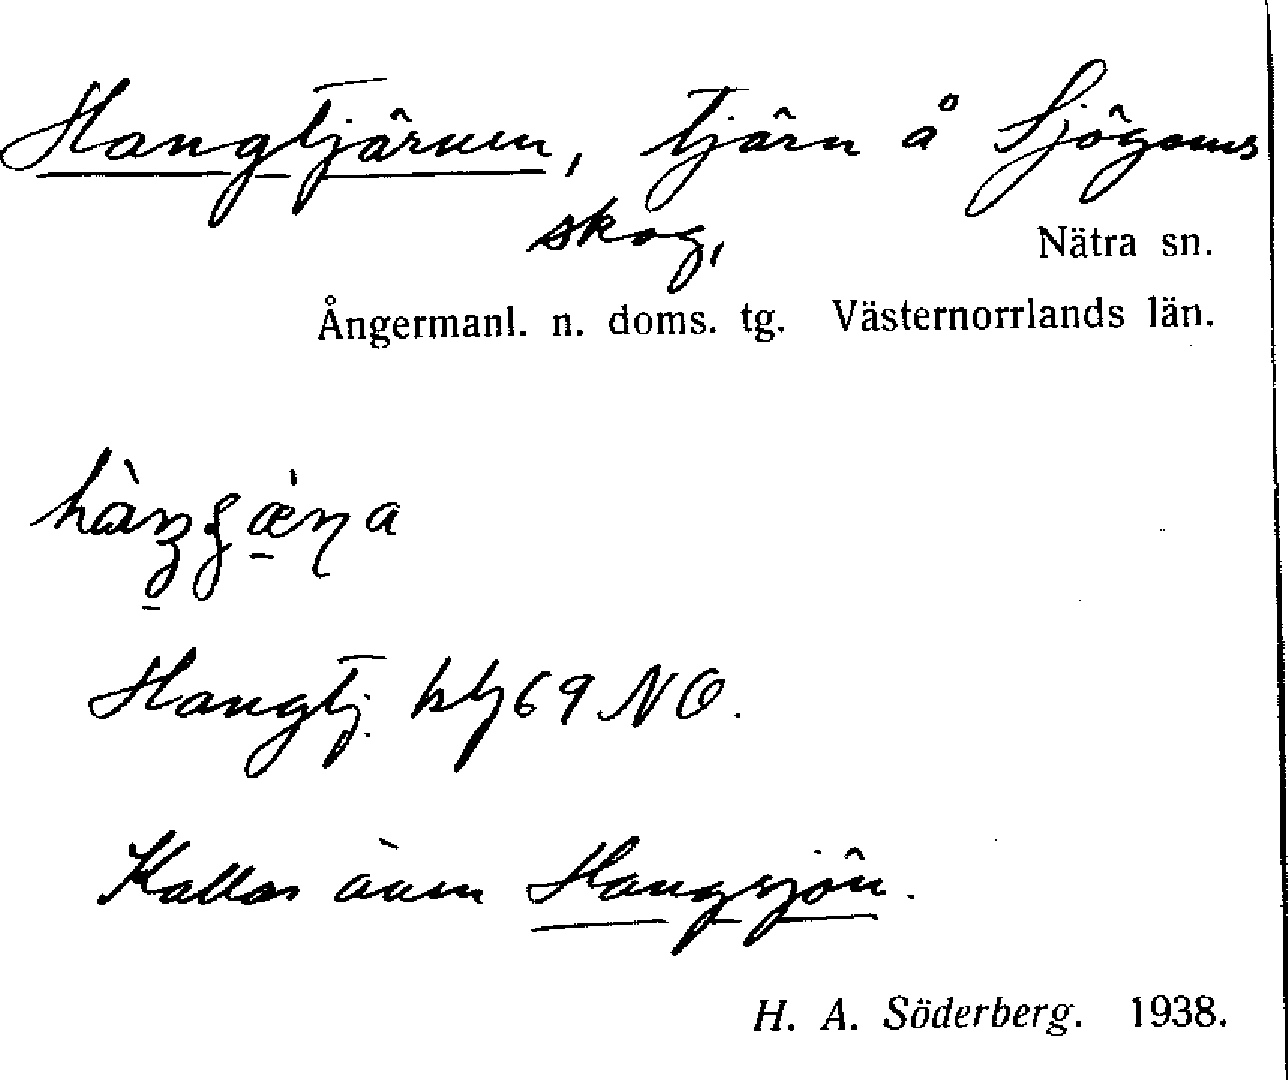 Hangtjärnen, tjärn å Sjögoms
skog,
Nätra sn.
Ångermanl. n. doms. tg. Västernorrlands län.
Hangtj. 69 NO.
Kallas även Hangsjön.
H. A. Söderberg. 1938.